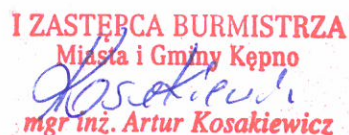 I ZASTĘPCA BURMISTRZA
Miasta i Gminy Kępno
Kosakiewicz
mgr inż. Artur Kosakiewicz